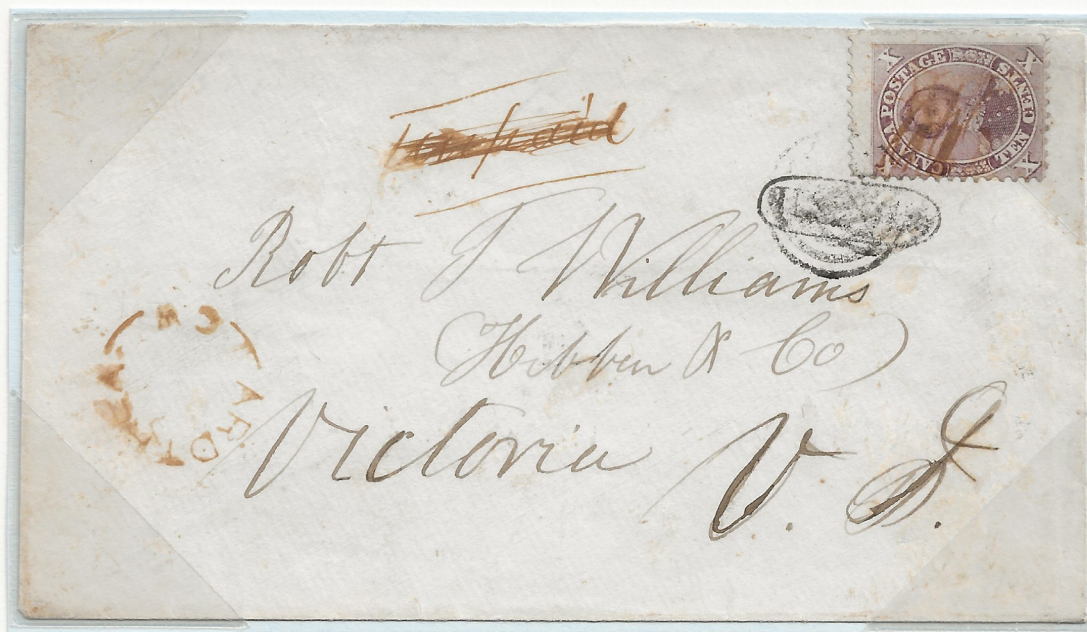 X CANADA POSTAGE TEN CENTS X
X X
Unpaid
Robt T Williams
Hibben & Co)
Victoria V. I.